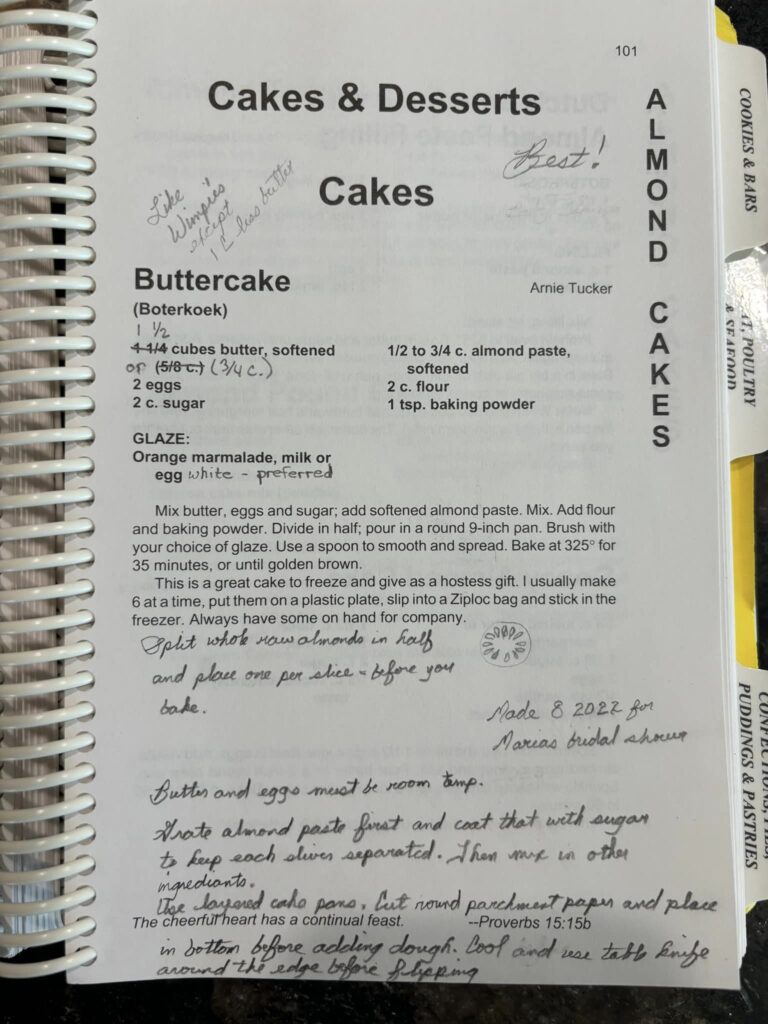 101
Cakes & Desserts
Best!
Cakes
Like
Wimpie's
except
1 L less butter
Buttercake
Arnie Tucker
(Boterkoek)
1 1/2
1 1/4 cubes butter, softened
or (5/8 c.) (3/4 c.)
2 eggs
2 c. sugar
1/2 to 3/4 c. almond paste,
softened
2 c. flour
1 tsp. baking powder
GLAZE:
Orange marmalade, milk or
egg white - preferred
Mix butter, eggs and sugar; add softened almond paste. Mix. Add flour
and baking powder. Divide in half; pour in a round 9-inch pan. Brush with
your choice of glaze. Use a spoon to smooth and spread. Bake at 325° for
35 minutes, or until golden brown.
This is a great cake to freeze and give as a hostess gift. I usually make
6 at a time, put them on a plastic plate, slip into a Ziploc bag and stick in the
freezer. Always have some on hand for company.
Split whole raw almonds in half
and place one per slice - before you
bake.
Made 8 2022 for
Marias bridal shower
Butter and eggs must be room temp.
Grate almond paste first and coat that with sugar
to keep each sliver separated. Then mix in other
ingrediants.
Use layered cake pans. Cut round parchment paper and place
The cheerful heart has a continual feast. --Proverbs 15:15b
in bottom before adding dough. Cool and use table knife
around the edge before flipping
ALMOND CAKES
COOKIES & BARS
AT, POULTRY
& SEAFOOD
CONFECTIONS, PIES,
PUDDINGS & PASTRIES